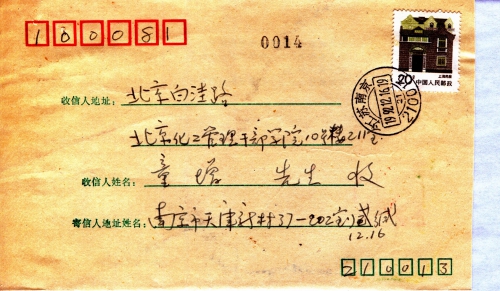 100081
0014
20分
上海民居
中国人民邮政
江苏南京
1992.12.16.19
210013
收信人地址：北京白洼路
北京化工管理干部学院10号楼211室
收信人姓名：童 先生 收
寄信人地址姓名：南京市天津新村37-202室 缄
12.16
210013